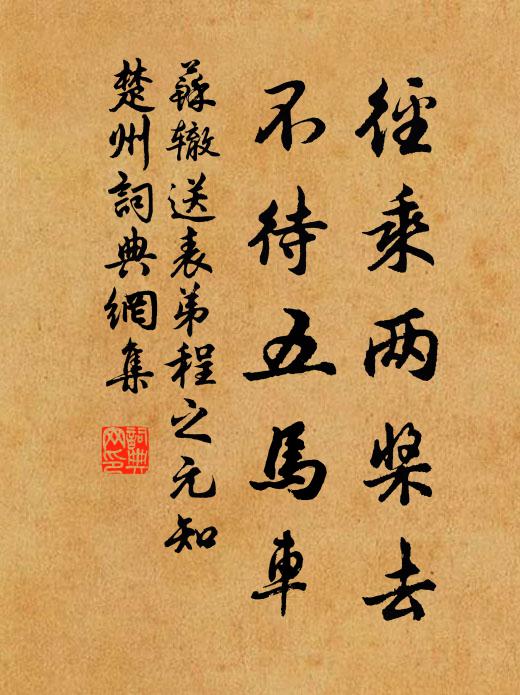 徑乘两槳去
不待五馬車
蘇辙送表弟程之元知
楚州詞典網集
詞典网印